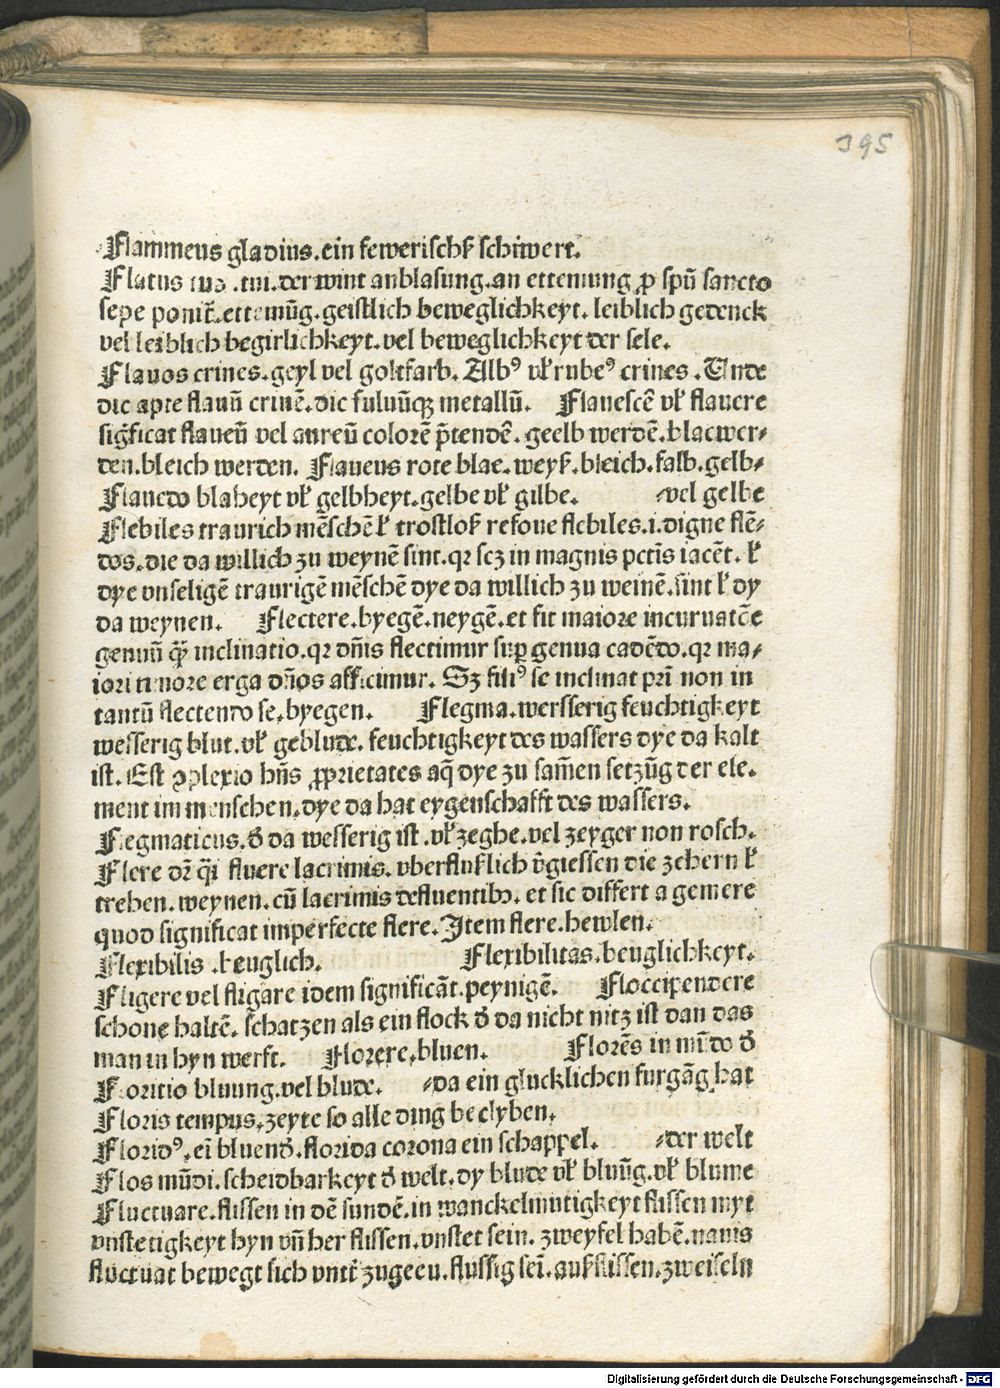 395
Flammeus gladius.ein fewerischß schwert.
Flatus tus .tui.der wint anblasung.an ettemung ꝓ spū sancto
sepe ponit̄.ettemūg.geistlich beweglichkeyt.leiblich gedenck
vel leiblich begirlichkeyt.vel beweglichkeyt der sele.
Flauos crines.geyl vel goltfarb.Albꝰ vl̄ rubeꝰ crines.Unde
dic apte flauū crinē.dic fuluūqꝫ metallū. Flauescē vl̄ flauere
significat flaueū vel aureū colorē p̄tendē.geelb werdē.blaewer⸗
den.bleich werden. Flaueus rote blae.weyß.bleich.falb.gelb⸗
Flauedo blaheyt vl̄ gelbheyt.gelbe vl̄ gilbe. ⸗vel gelbe
Flebiles traurich mēschē ł trostloß refoue flebiles.i.digne flē⸗
dos.die da willich zu weynē sint.qꝛ scꝫ in magnis pctīs iacēt.ł
dye vnseligē traurigē mēschē dye da willich zu weinē.sint ł dy
da weynen. Flectere.byegē.neygē.et fit maiore incuruatōe
genuū q̄ꝫ inclinatio.qꝛ dn̄is flectimur suꝑ genua cadēdo.qꝛ ma⸗
iori timore erga dn̄os afficimur. Sꝫ filiꝰ se inclinat pr̄i non in
tantū flectendo se.byegen. Flegma.wersserig feuchtigkeyt
wesserig blut.vl̄ geblude.feuchtigkeyt des wassers dye da kalt
ist.Est ꝯplexio hn̄s ꝓprietates aq̄ dye zu sam̄en setzūg der ele⸗
ment im menschen.dye da hat eygenschafft des wassers.
Flegmaticus.d̄ da wesserig ist.vl̄ zeghe.vel zeyger non rosch.
Flere dr̄ q̄i fluere lacrimis.vberflußlich v̄giessen die zehern ł
trehen.weynen.cū lacrimis defluentibꝰ.et sic differt a gemere
quod significat imperfecte flere.Item flere.hewlen.
Flexibilis .beuglich. Flexibilitas.beuglichkeyt.
Fligere vel fligare idem significāt.peynigē. Floccipendere
schone haltē.schatzen als ein flock d̄ da nicht nitz ist dan das
man in hyn werft. Florere.bluen. Florēs in mūdo d̄
Floritio bluung.vel blude. ⸗da ein glucklichen furgāg hat
Floris tempus.zeyte so alle ding beclyben.
Floridꝰ.eī bluend̄.florida corona ein schappel. ⸗der welt
Flos mūdi.scheidbarkeyt d̄ welt.dy blude vl̄ bluūg.vl̄ blume
Fluctuare.flissen in dē sundē.in wanckelmutigkeyt flissen myt
vnstetigkeyt hyn vn̄ her flissen.vnstet sein.zweyfel habē.nauis
fluctuat bewegt sich vntt̄ zugeen.flussig seī.außflissen.zweifeln
Digitalisierung gefördert durch die Deutsche Forschungsgemeinschaft - DFG